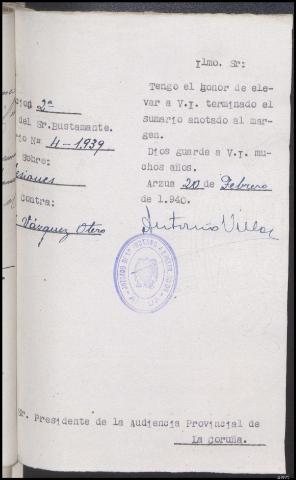 Ilmo. Sr:
Tengo el honor de ele-
var a V.I. terminado el
sumario anotado al mar-
gen.
Dios guarde a V.I. mu-
chos años.
Arzua 20 de Febrero
de 1.940.
Antonio Villar
cion 2ª
del Sr.Bustamante.
io Nº 4-1939
Sobre:
esiones
Contra:
Vázquez Otero
Sr. Presidente de la Audiencia Provincial de
La Coruña.